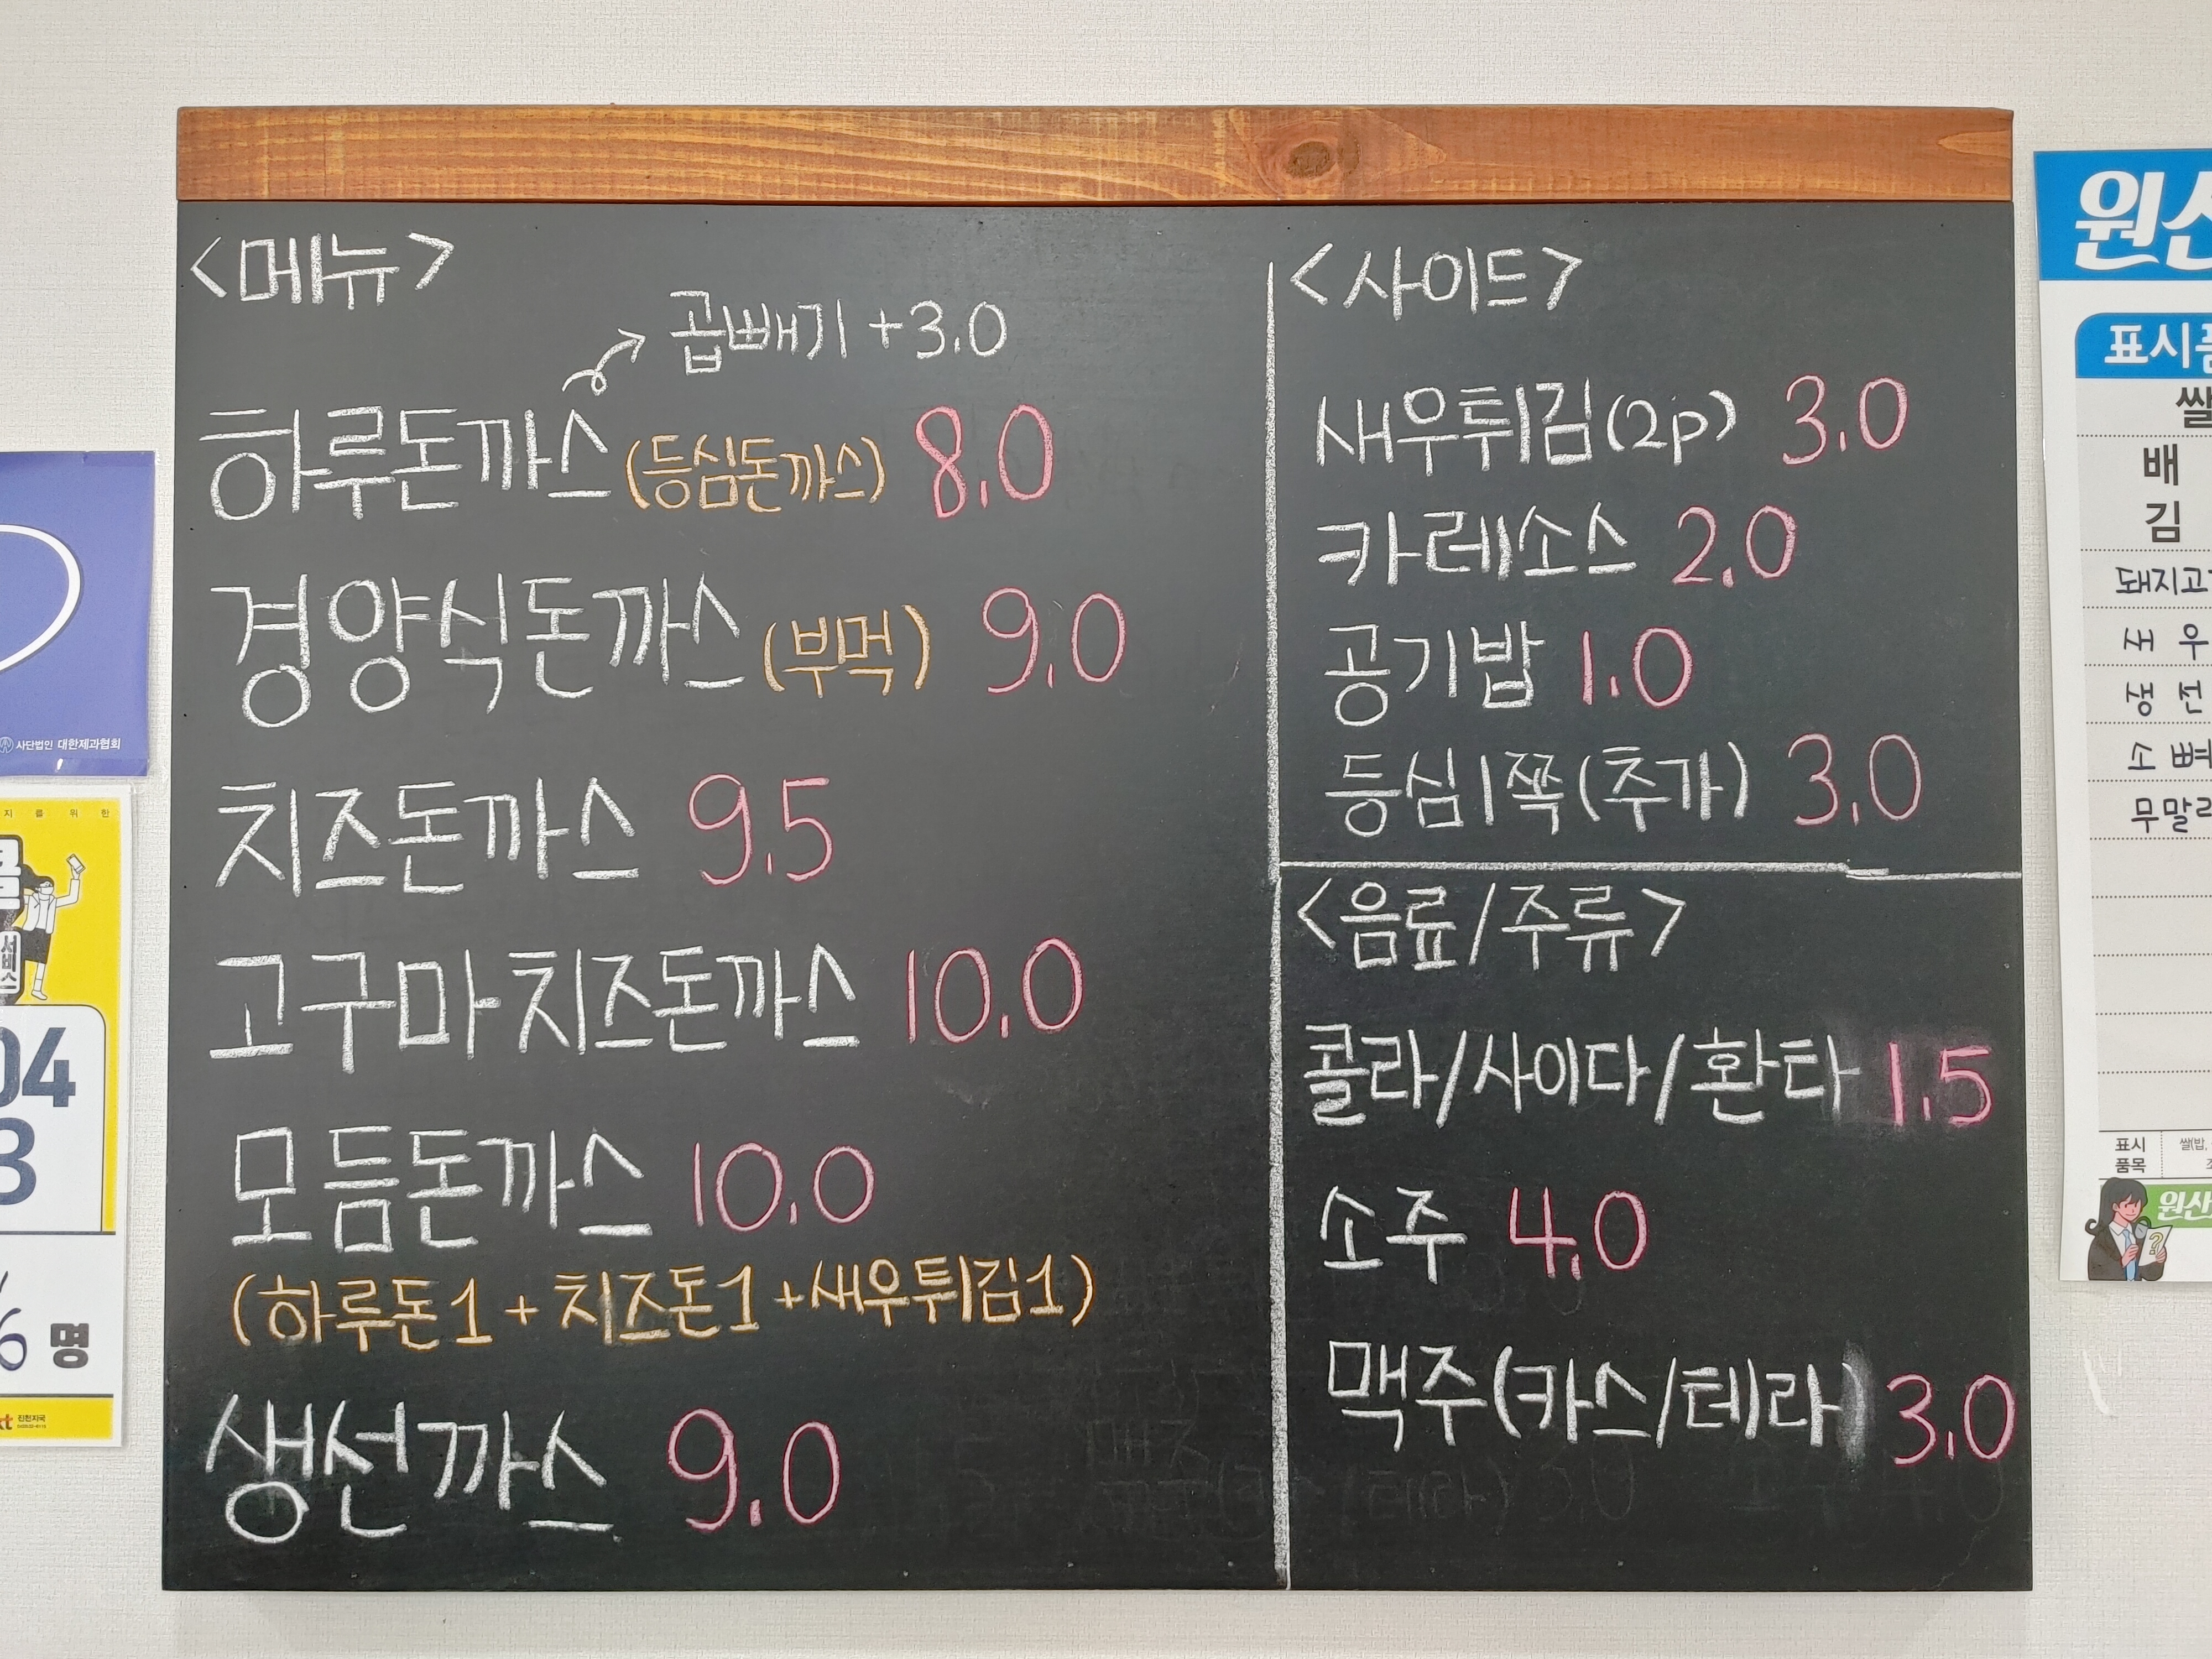 <메뉴>
곱빼기 +3.0
하루돈까스 (등심돈까스) 8.0
경양식돈까스 (부먹) 9.0
치즈돈까스 9.5
고구마치즈돈까스 10.0
모듬돈까스 10.0
(하루돈1 + 치즈돈1 + 새우튀김1)
생선까스 9.0
<사이드>
새우튀김(2p) 3.0
카레소스 2.0
공기밥 1.0
등심1쪽(추가) 3.0
<음료/주류>
콜라/사이다/환타 1.5
소주 4.0
맥주(카스/테라) 3.0
사단법인 대한제과협회
지 를 위 한
서비스
04
3
6 명
kt 진천지국
원산
표시
쌀
배
김
돼지고
무말
표시
품목
쌀(밥,
원산